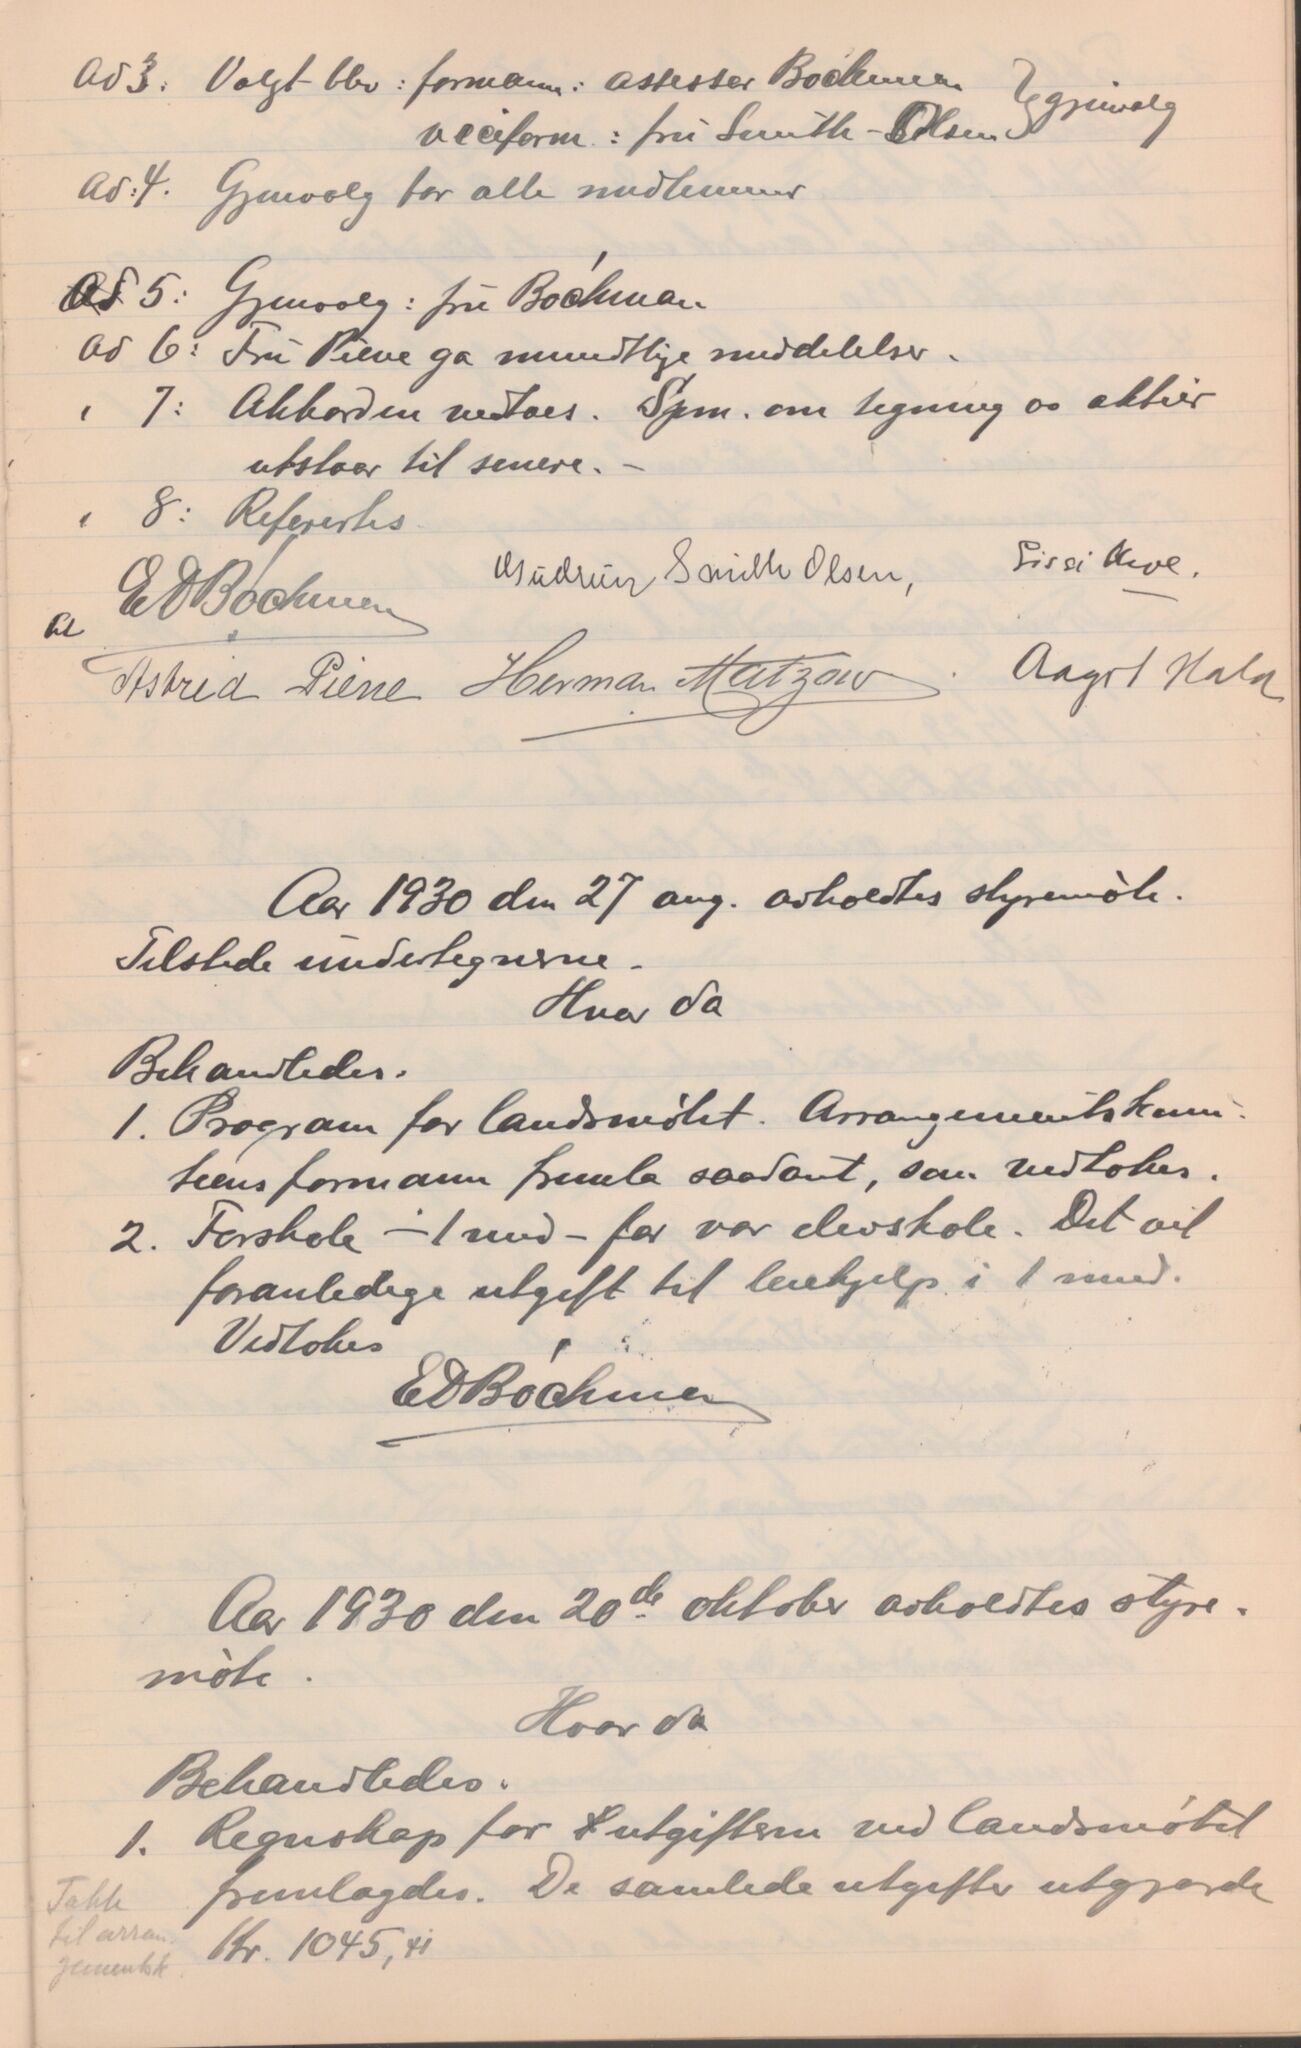 Ad 3: Valgt blev: formann: assessor Bóchman } gjenvalg
viceform.: frú Smith-Olsen
Ad: 4. Gjenvalg for alle medlemmer
Ad 5: Gjenvalg: frú Bóchman
Ad 6: Frú Piene ga mundtlige meddelelser.
" 7: Akkorden vedtaes. Spm. om tegning av aktier
utstaar til senere. -
" 8: Refererties
ED Bóchman Gudrun Smith Olsen,
Astrid Piene Herman Matzow. Aagot Hald
Aar 1930 den 27 aug. avholdtes styremöte.
Tilstede undertegnerne.
Hvor da
Behandledes.
1. Program for landsmötet. Arrangementskomi-
teens formann fremla saadant, som vedtokes.
2. Forskole - 1 mnd - for vor elevskole. Det vil
foranledige utgift til leiehjelp i 1 mnd.
Vedtokes
ED Bóchman
Aar 1930 den 20de oktober avholdtes styre-
möte.
Hvor da
Behandledes.
1. Regnskap for utgiftern ved landsmötet
fremlagdes. De samlede utgifter utgjorde
Kr. 1045,41
Takk
til arran-
gementsk.